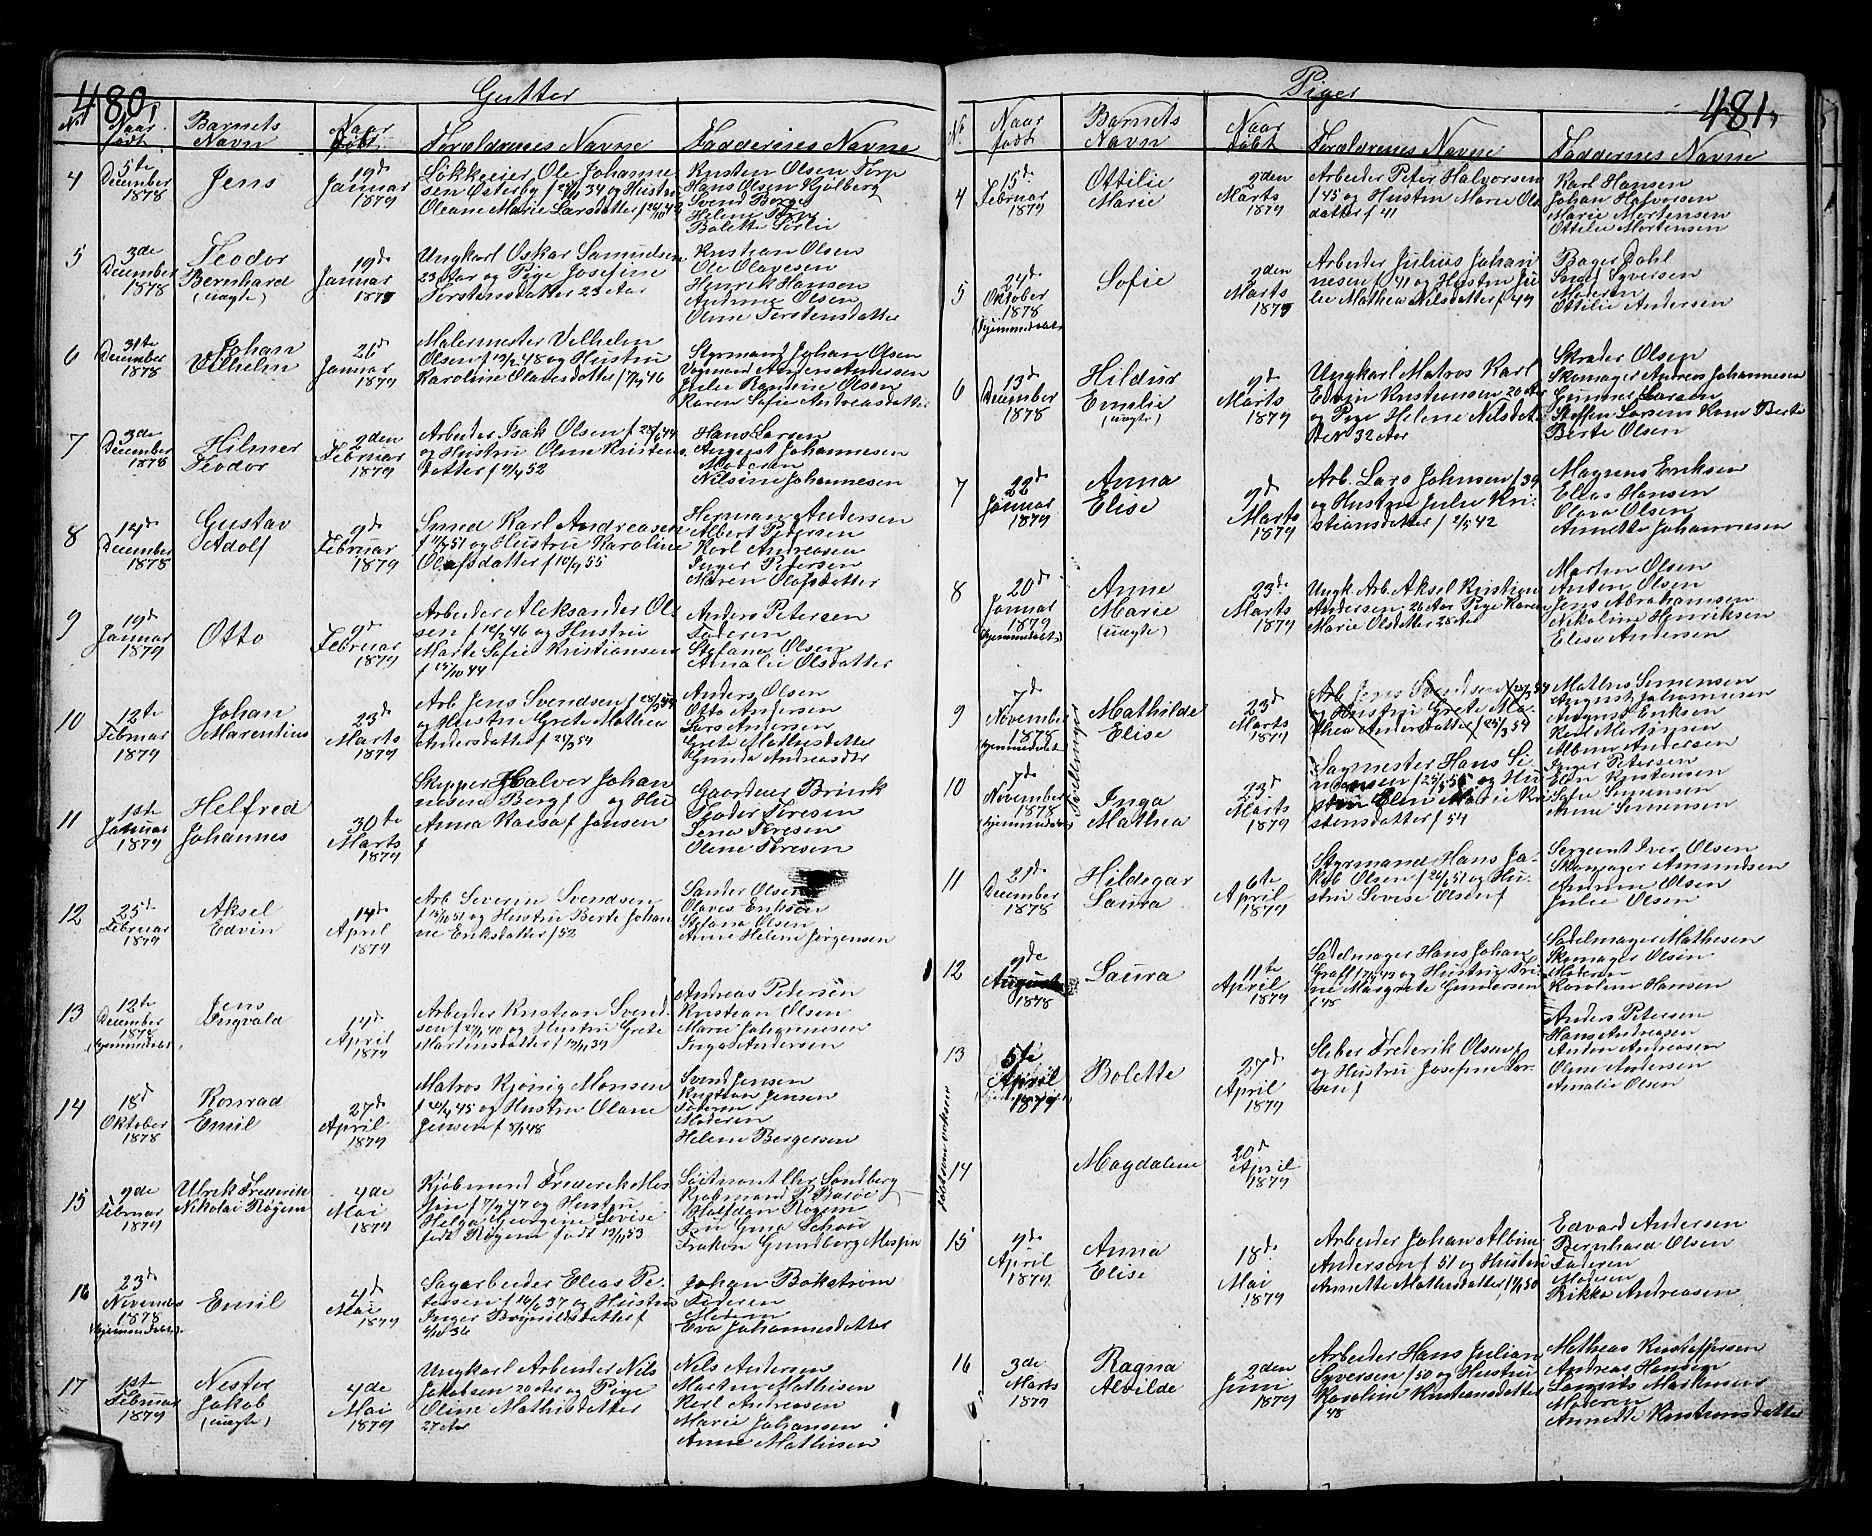 480,
Gutter
No
Naar født
Barnets Navn
Naar Døbt
Forældrenes Navne
Faddernes Navne
4
5te December 1878
Jens
19d Januar 1879
Løkkeeier Ole Johanne
sen Østerby f 34 og Hustru
Oleane Marie Larsdatter f
Kristen Olsen Torp
Hans Olsen Kjølberg
Svend Borge
Helene Torp
Bolette Sørlie
5
3de December 1878
Teodor
Bernhard
(uægte)
19d Januar 1879
Ungkarl Oskar Samuelsen
23 Aar og Pige Josefine
Torstensdatter 23 Aar
Kristian Olsen
Ole Olavesen
Henrik Hansen
Andrine Olsen
Oline Torstensdatter
6
31te December 1878
Johan
Vilhelm
26d Januar 1879
Malermester Vilhelm
Olsen f 13/2 48 og Hustru
Karoline Olavesdatter f 46
Styrmand Johan Olsen
Vognmand Anders Andersen
Julie Olsen
Karen Sofie Andreasdatter
7
3de December 1878
Hilmer
Teodor
2den Februar 1879
Arbeider Isak Olsen f 28/6 44
og Hustru Oline Kristens
datter f 52
Hans Larsen
August Johannesen
Moderen
Nilsine Johannesen
8
14d December 1878
Gustav
Adolf
9d Februar 1879
Smed Karl Andreasen
f 51 og Hustru Karoline
Olafsdatter f 55
Herman Andersen
Albert Pedersen
Karl Andreasen
Inger Petersen
Maren Olafsdatter
9
19d Januar 1879
Otto
9d Februar 1879
Arbeider Aleksander Ol-
sen f 12/2 46 og Hustru
Marte Sofie Kristiansen
f 15/10 44
Anders Petersen
Faderen
Stefana Olsen
Amalie Olsdatter
10
12te Februar 1879
Johan
Marentius
23d Marts 1879
Arb Jens Svendsen f
og Hustru Grete Mathea
Andersdatter f 25/3 54
Anders Olsen
Otto Andersen
Lars Andersen
Grete Mathisdatter
Gunda Andreasdr
11
1ste Januar 1879
Helfred
Johannes
30te Marts 1879
Skipper Halvor Johan
nesen Berg f og Hu
Anna Jansen
f
Gaardeier Brink
Teodor Toresen
Lena Toresen
Oline Toresen
12
25d Februar 1879
Aksel
Edvin
14d April 1879
Arb Severin Svendsen
f 51 og Hustru Berte Johan
ne Eriksdatter f 52
Sander Olsen
Olaves Eriksen
Stefana Olsen
Anne Helene Jørgensen
13
12te December 1878
(hjemmedøbt)
Jens
Ingvald
14d April 1879
Arbeider Kristian Svend-
sen f 40 og Hustru Grete
Martinsdatter f 13/11 39
Andreas Petersen
Kristian Olsen
Marie Johannesen
Inga Andersen
14
18d Oktober 1878
Konrad
Emil
27d April 1879
Matros Kjønig Monsen
f 45 og Hustru Olane
Jensen f 48
Svend Jensen
Kristian Jensen
Faderen
Moderen
Helene Bergersen
15
9de Februar 1879
Ulrik Frederik
Nikolai Røgem
4de Mai 1879
Kjøbmand Frederik Mes
sin f 47 og Hustru
Helga Georgene Lovise
født Røgem født 13/11 53
Løitnant Chr Sandberg
Kjøbmand P Basøe
Halfdan Røgem
Fru Gina Schou
Frøken Gundborg Messin
16
23d November 1878
(hjemmedøbt)
Emil
4d Mai 1879
Sagarbeider Elias Pe-
tersen f 37 og Hustru
Inger Børgildsdatter f
36
Johan Bokstrøm
Faderen
Moderen
Eva Johannesdatter
17
1ste Februar 1879
Nestor
Jakob
(uægte)
4de Mai 1879
Ungkarl Arbeider Nils
Jakobsen 20 Aar og Pige
Oline Mathisdatter
27 Aar
Nils Andersen
Martin Mathisen
Karl Andreasen
Marie Johansen
Anne Mathisen
481,
Piger
No
Naar født
Barnets Navn
Naar Døbt
Forældrenes Navne
Faddernes Navne
4
15d Februar 1879
Ottilie
Marie
2den Marts 1879
Arbeider Peter Halvorsen
f 45 og Hustru Marie Ols
datter f 41
Karl Hansen
Johan Halvorsen
Marie Mortensen
Ottilie Mortensen
5
24d Oktober 1878
(hjemmedøbt)
Sofie
2den Marts 1879
Arbeider Julius Johan
nesen f 41 og Hustru Ju
lie Mathea Nilsdatter f 49
Bager Dahl
Syversen
Moderen
Ottilie Andersen
6
13d December 1878
Hildur
Emilie
(uægte)
9d Marts 1879
Ungkarl Matros Karl
Edvin Kristiansen 20 Aar
og Pige Helene Nilsdat
ter 32 Aar
Skræder Olsen
Skomager Andreas Johannesen
Gunner Larsen
Steffen Larsens Kone Berte
Berte Olsen
7
22d Januar 1879
Anna
Elise
9d Marts 1879
Arb. Lars Johnsen f 39
og Hustru Julie Kri-
stiansdatter f 2/5 42
Magnus Eriksen
Elias Hansen
Olava Olsen
Annette Johannesen
8
20d Januar 1879
(hjemmedøbt)
Anne
Marie
(uægte)
23de Marts 1879
Ungk. Arb. Aksel Kristian
Andersen 26 Aar Pige Karen
Marie Olsdatter 28 Aar
Martin Olsen
Anton Olsen
Jens Abrahamsen
Nikoline Henriksen
Elise Andersen
9
7d November 1878
(hjemmedøbt)
Tvillinger
Mathilde
Elise
23d Marts 1879
Arb Jens Svendsen f
og Hustru Grete Ma-
thea Andersdatter f 25/3 54
Mathis Simensen
August Johannesen
August Eriksen
Karl Mortensen
Albine Andersen
10
7d November 1878
(hjemmedøbt)
Inga
Mathea
23d Marts 1879
Sagmester Hans Si-
mensen f 55 og Hu
stru Elen Marie Kri
stensdatter f 54
Inger Petersen
Elen Kristensen
Sofie Simensen
Anne Simensen
11
21d December 1878
Hildegar
Laura
6te April 1879
Styrmand Hans Ja-
kob Olsen f 26/6 51 og Hu-
stru Lovise Olsen f
Sergeant Iver Olsen
Skomager Amundsen
Andrine Olsen
Julie Olsen
12
9de August 1878
Laura
11te April 1879
Sadelmager Hans Johan
Graff f 43 og Hustru Tri-
ne Margrete Gundersen
f 48
Sadelmager Mathesen
Skomager Olsen
Moderen
Karoline Hansen
13
5te April 1879
Bolette
27d April 1879
Sleber Frederik Olsen f
og Hustru Josefine Lar-
sen f
Anders Petersen
Hans Andreasen
Anton Andreasen
Oline Andersen
Amalie Olsen
14
døbt som voksen
Magdalene
20d April 1879
15
9de April 1879
Anna
Elise
18de Mai 1879
Arbeider Johan Albin
Andersen f 51 og Hustru
Annette Mathisdatter f 50
Edvard Andersen
Bernhard Olsen
Faderen
Moderen
Rikka Andreasen
16
3de Marts 1879
Ragna
Alvilde
2den Juni 1879
Arbeider Hans Julian
Syversen f 50 og Hustru
Karoline Kristiansdatter
f 48
Mathias Kristoffersen
Andreas Hansen
Laurits Martinsen
Moderen
Annette Kristiansdatter